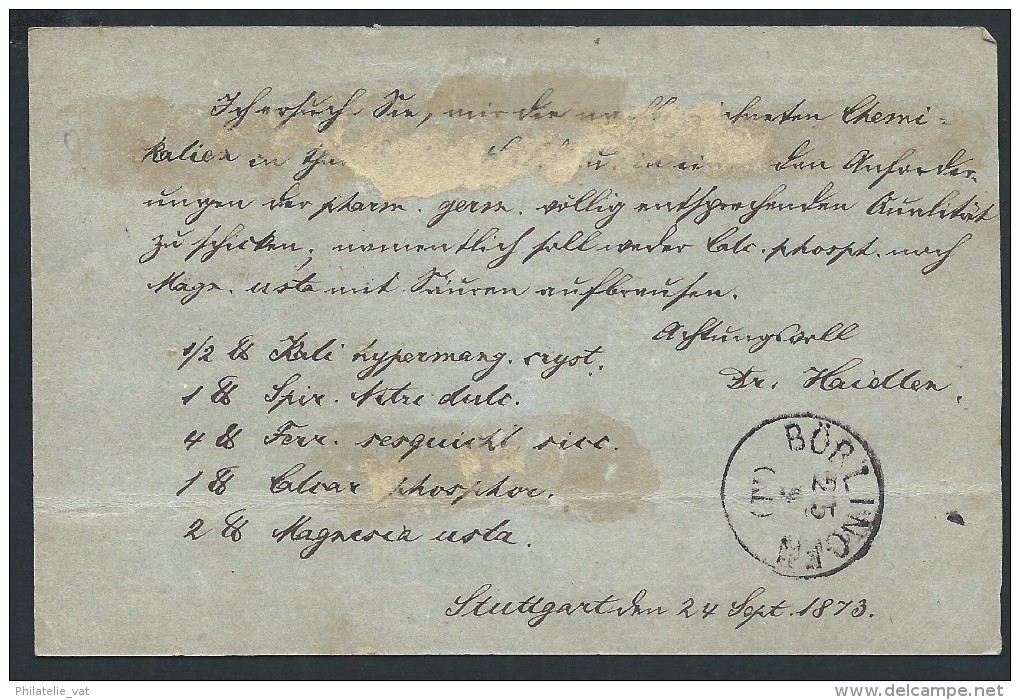 Ich ersuche Sie, mir die nachbezeichneten Chemi-
kalien in den Anforder-
ungen der pharm. germ. völlig entsprechenden Qualität
zu schicken, namentlich soll weder Calc. phospt. noch
Magn. usta mit Säuren aufbrausen.
Achtungsvoll
Dr. Haidlen.
1/2 ℔ Kali hypermang. cryst.
1 ℔ Spir. Nitri dulc.
4 ℔ Ferr. sesquichl sicc.
1 ℔ Calcar phosphor.
2 ℔ Magnesia usta.
BÖBLINGEN
25
9
(T)
Stuttgart den 24 Sept. 1873.
Philatelie_vat
www.delcampe.net